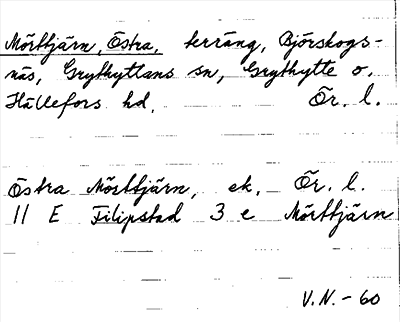 Mörttjärn, Östra, terräng, Björskogs-
näs, Grythyttans sn, Grythytte o.
Hällefors hd. Ör. l.
Östra Mörttjärn, ek. Ör. l.
11 E Filipstad 3 e Mörttjärn
V.N.-60